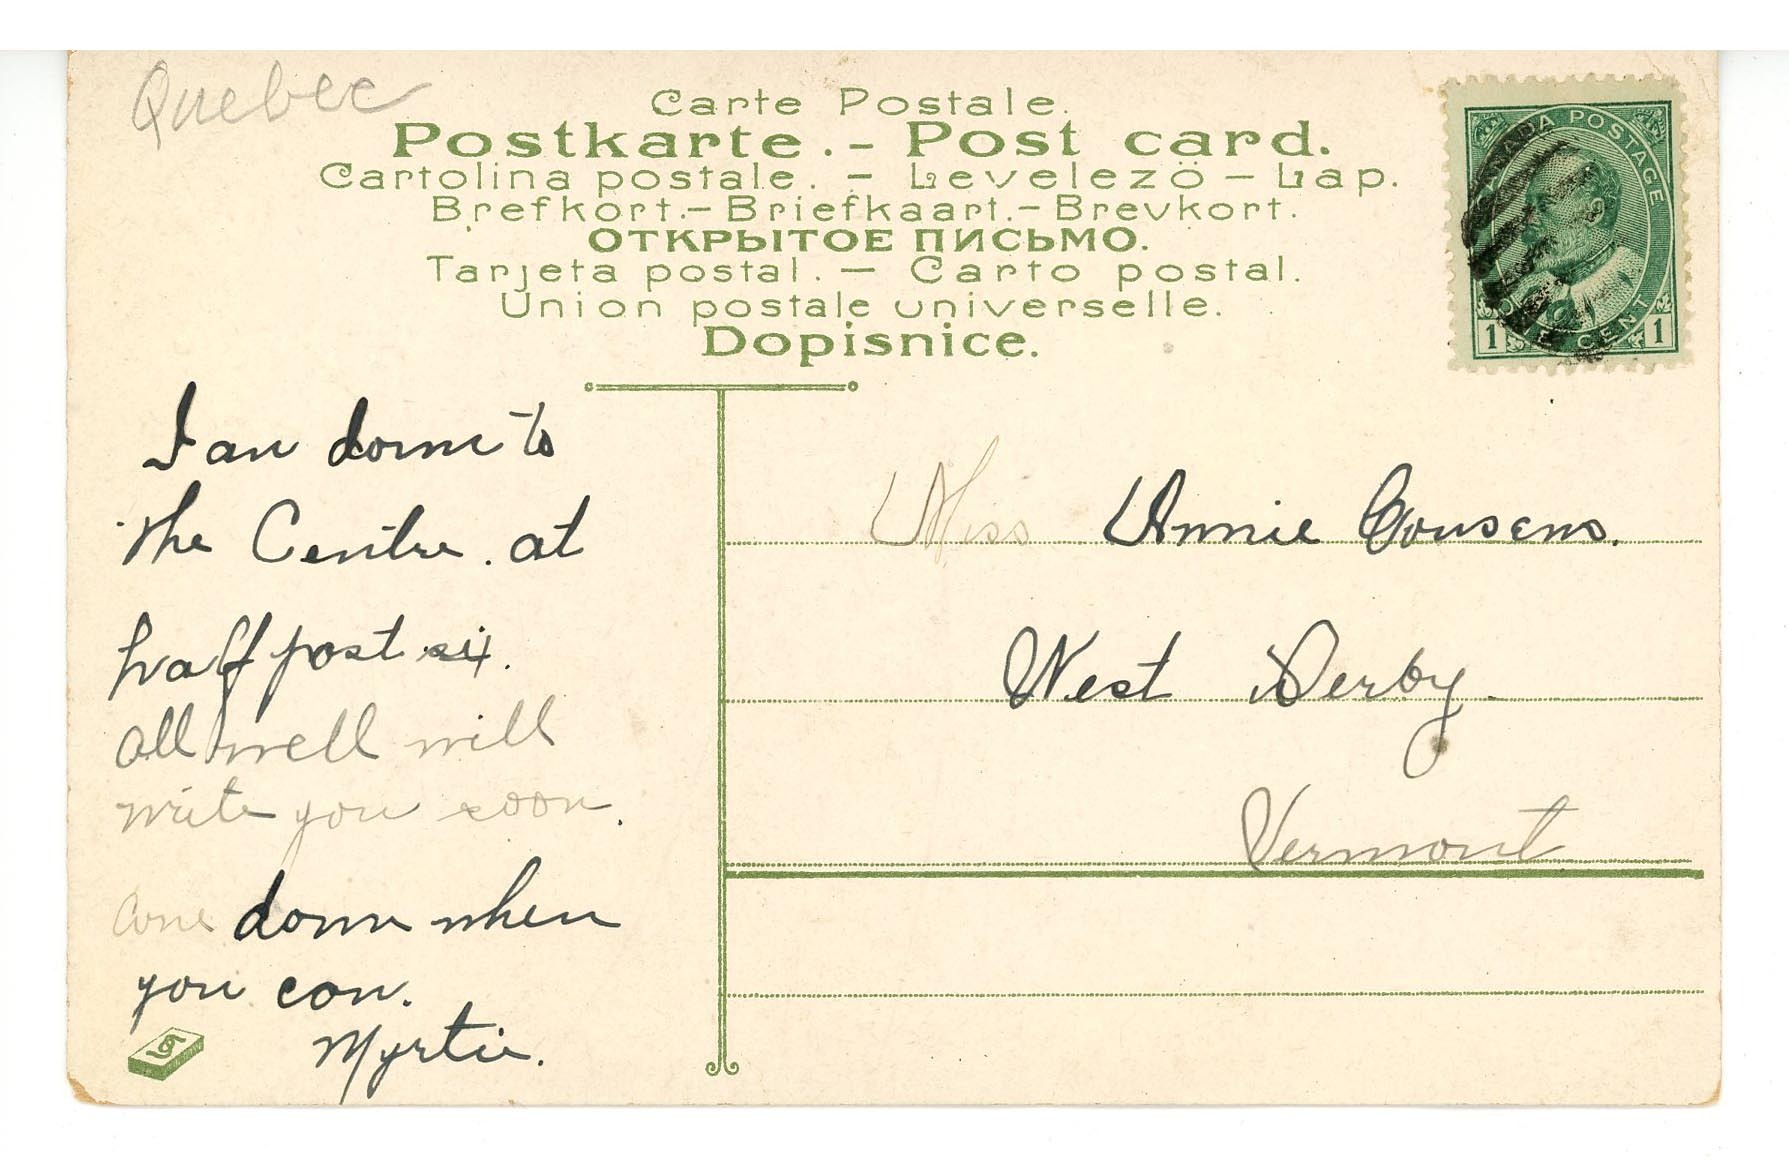 Quebec
Carte Postale.
Postkarte.- Post card.
Cartolina postale. - Levelezö - Lap.
Brefkort.- Briefkaart.- Brevkort.
ОТКРЫТОЕ ПИСЬМО.
Tarjeta postal. - Carto postal.
Union postale universelle.
Dopisnice.
CANADA POSTAGE
ONE CENT
1 1
I am down to
the Centre. at
half past six.
all well will
write you soon.
come down when
you can.
Myrtie.
Miss Annie Cousens.
West Derby.
Vermont